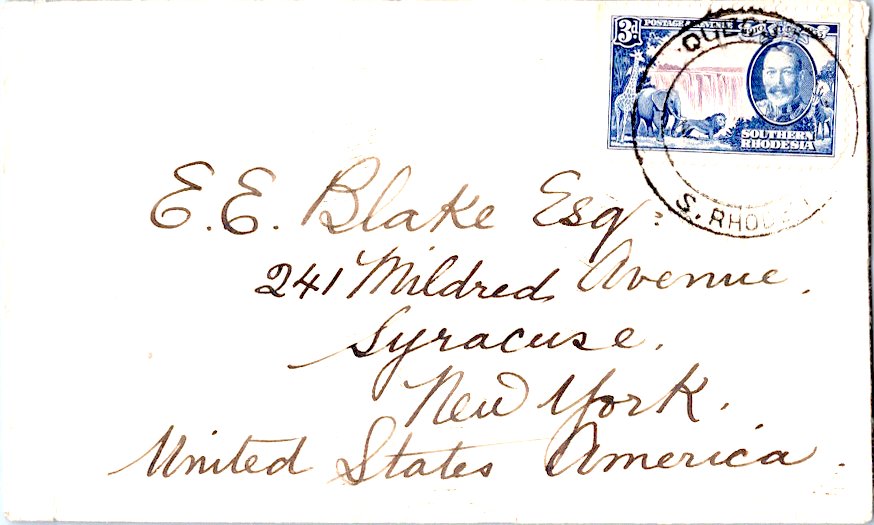 3d POSTAGE & REVENUE
QUEQUE
SOUTHERN
RHODESIA
S. RHODESIA
E. E. Blake Esq.
241 Mildred Avenue.
Syracuse.
New York.
United States America.